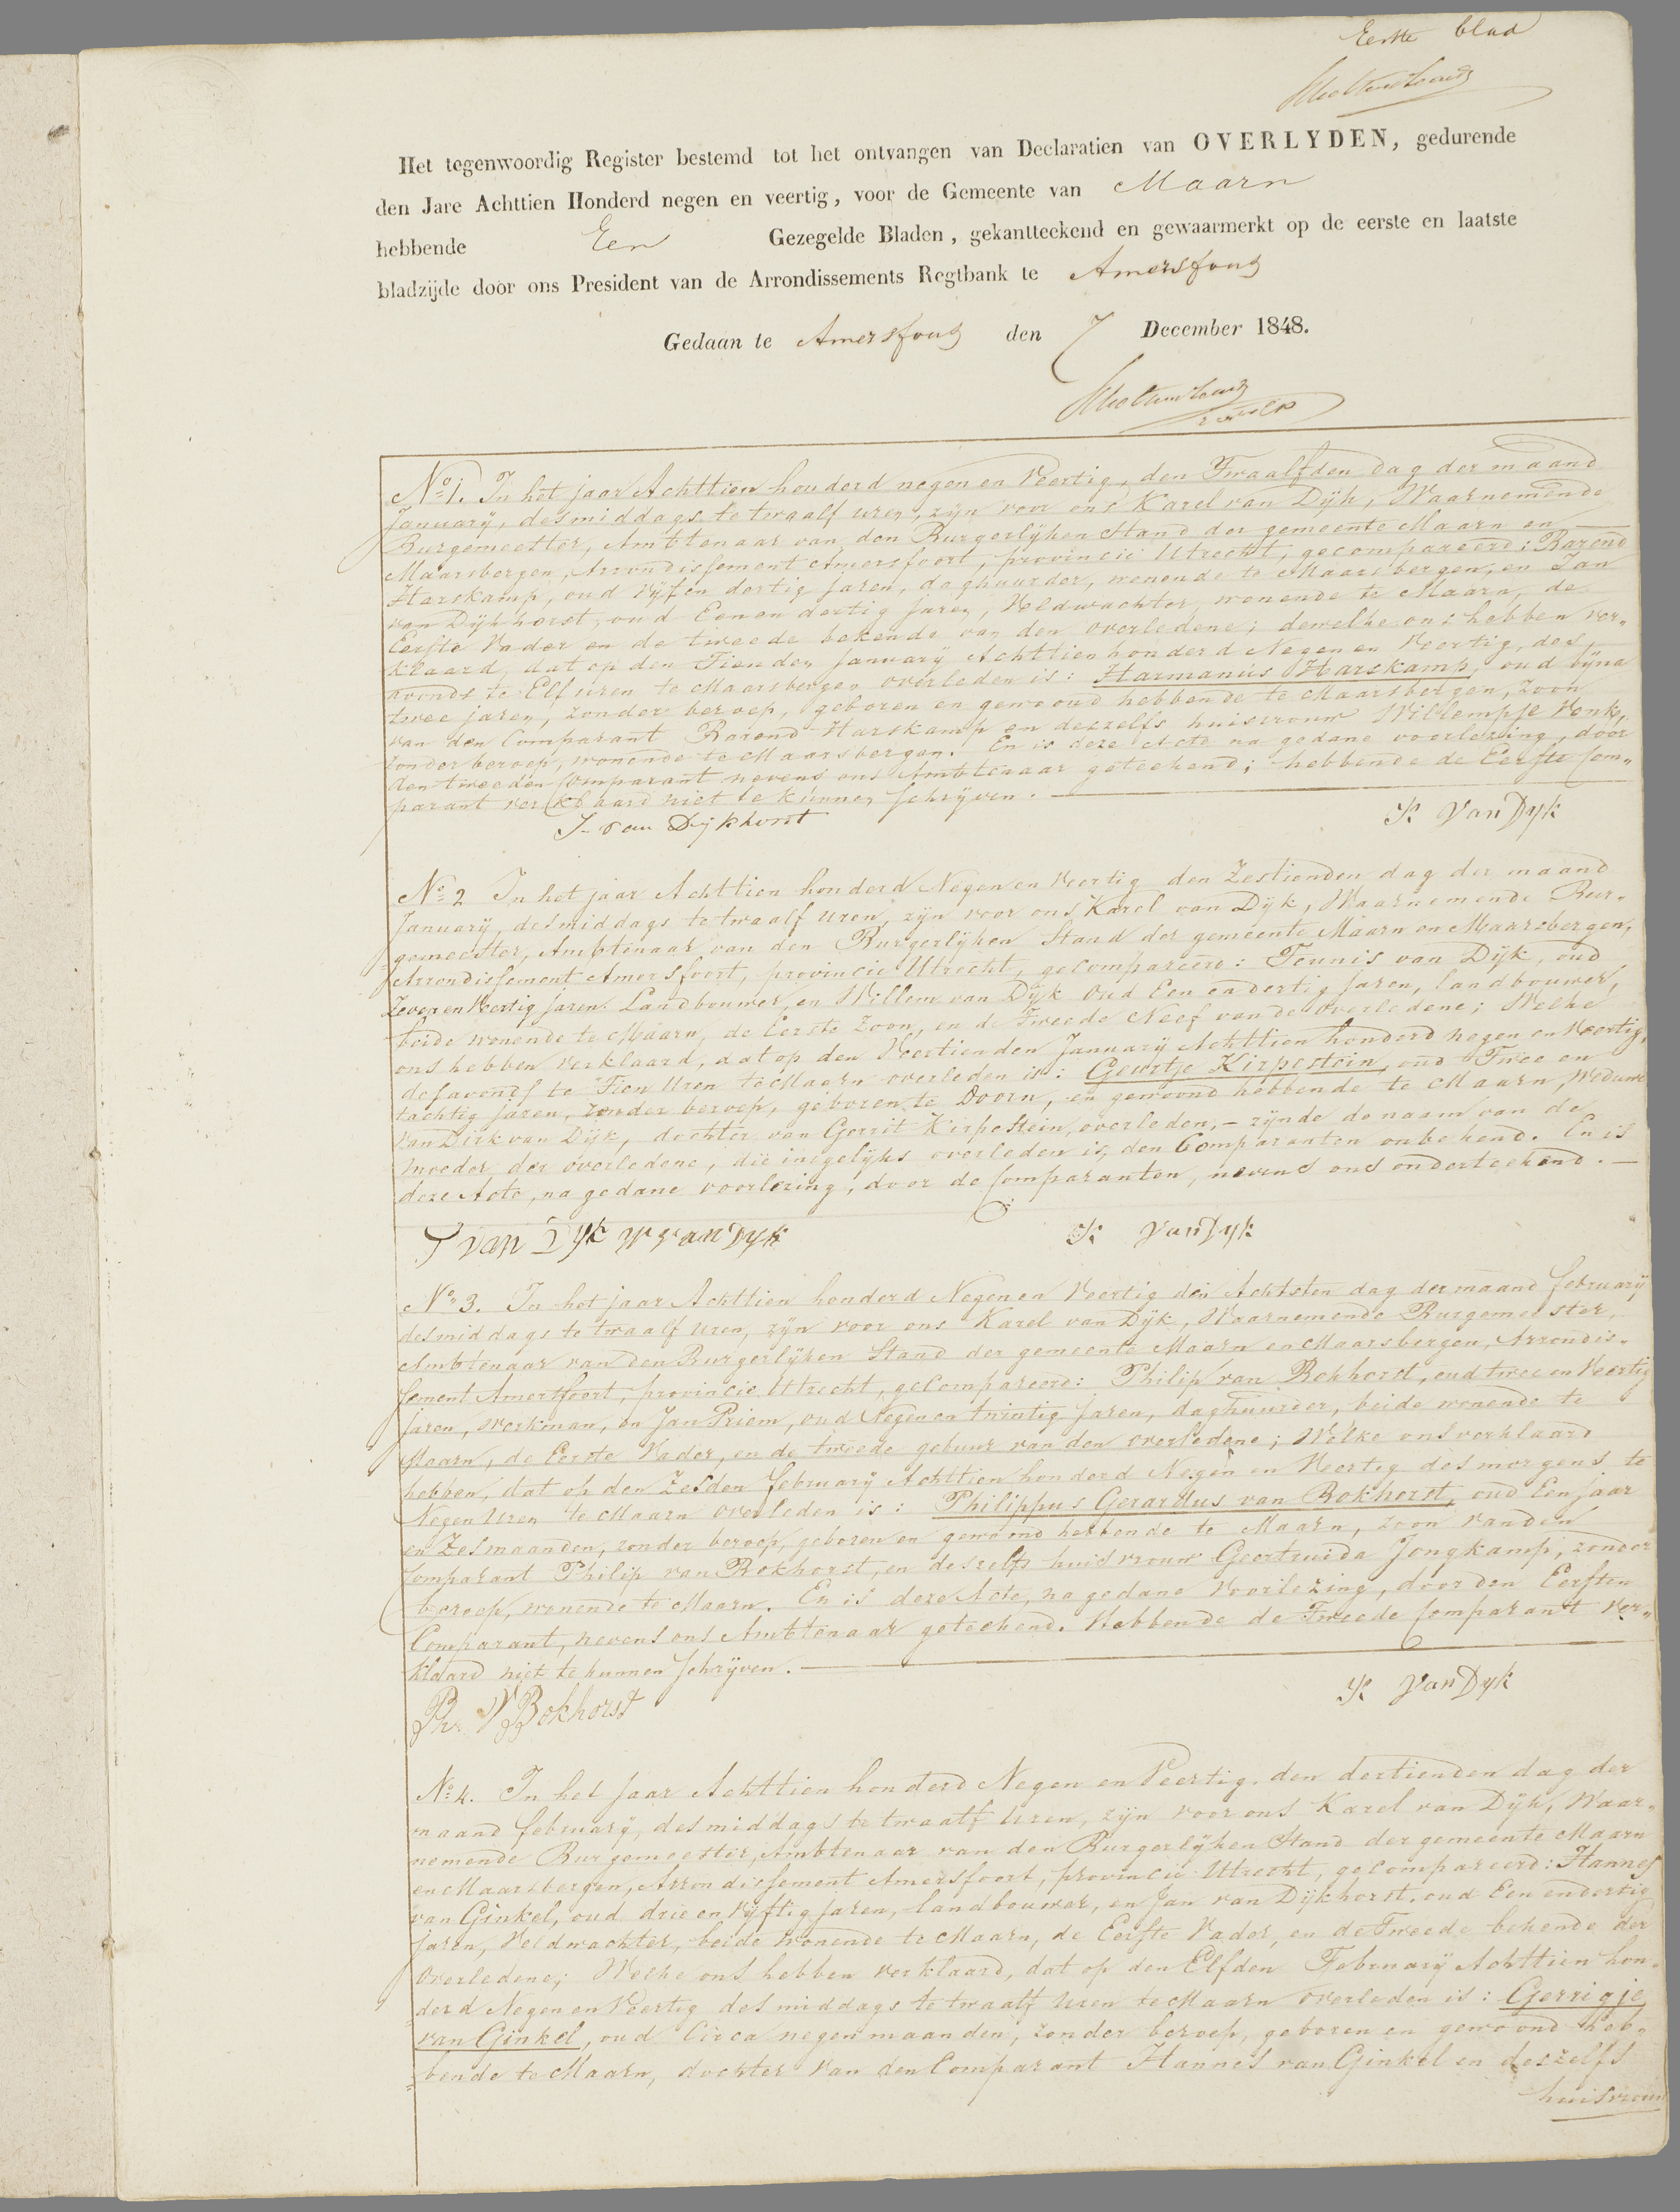 Eerste blad
Het tegenwoordig Register bestemd tot het ontvangen van Declaratien van OVERLYDEN, gedurende
den Jare Achttien Honderd negen en veertig, voor de Gemeente van Maarn
hebbende Een Gezegelde Bladen, gekantteekend en gewaarmerkt op de eerste en laatste
bladzijde door ons President van de Arrondissements Regtbank te Amersfoort
Gedaan te Amersfoort den 7 December 1848.
No 1. In het jaar Achttien honderd negen en Veertig, den Twaalfden dag der maand
January, desmiddags te twaalf uren, zijn voor ons Karel van Dijk, Waarnemende
Burgemeester, Ambtenaar van den Burgerlijken Stand der gemeente Maarn en
Maarsbergen, Arrondissement Amersfoort, provincie Utrecht, gecompareerd: Barend
Harskamp, oud Vijfen dertig Jaren, daghuurder, wonende te Maarsbergen, en Jan
van Dijkhorst, oud Eenen dertig Jaren, Veldwachter, wonende te Maarn, de
Eerste Vader en de tweede bekende van den overledene; dewelke ons hebben ver„
klaard, dat op den Tienden January Achttien honderd Negen en Veertig, des
avonds te Elf uren te Maarsbergen overleden is: Harmanus Harskamp, oud bijna
twee jaren, zonder beroep, geboren en gewoond hebbende te Maarsbergen, zoon
van den Comparant Barend Harskamp en deszelfs huisvrouw Willempje Vonk,
zonder beroep, wonende te Maarsbergen. En is deze Acte na gedane voorlezing, door
den tweeden Comparant nevens ons Ambtenaar geteekend; hebbende de Eerste Com„
parant verklaard niet te kunnen schrijven.
J. van Dijkhorst K Van Dyk
No 2 In het jaar Achttien honderd Negen en Veertig den Zestienden dag der maand
January, desmiddags te twaalf uren, zijn voor ons Karel van Dijk, Waarnemende Bur„
gemeester, Ambtenaar van den Burgerlijken Stand der gemeente Maarn en Maarsbergen,
Arrondissement Amersfoort, provincie Utrecht, gecompareerd: Teunis van Dijk, oud
Zeven en Veertig Jaren. Landbouwer, en Willem van Dijk oud Een en dertig Jaren, landbouwer,
beide wonende te Maarn, de Eerste Zoon, en de Tweede Neef van de Overledene; Welke
ons hebben verklaard, dat op den Veertienden January Achttien honderd negen en Veertig,
des avonds te Tien Uren te Maarn overleden is: Geurtje Kirpestein, oud Twee en
tachtig jaren, zonder beroep, geboren te Doorn, en gewoond hebbende te Maarn, Weduwe
van Dirk van Dijk, dochter van Gerrit Kirpestein, overleden, – zijnde de naam van de
moeder der overledene, die insgelijks overleden is, den Comparanten onbekend. En is
deze Acte, na gedane voorlezing, door de Comparanten, nevens ons onderteekend.
T van Dyk W van Dyk K Van Dyk
No 3. In het jaar Achttien honderd Negen en Veertig den Achtsten dag der maand February
desmiddags te twaalf uren, zijn voor ons Karel van Dijk, Waarnemende Burgemeester,
Ambtenaar van den Burgerlijken Stand der gemeente Maarn en Maarsbergen, Arrondis„
sement Amersfoort, provincie Utrecht, gecompareerd: Philip van Bokhorst, oud twee en Veertig
Jaren, Werkman, en Jan Priem, oud Negen en twintig Jaren, daghuurder, beide wonende te
Maarn, de Eerste Vader, en de tweede gebuur van den overledene; Welke ons verklaard
hebben, dat op den Zesden February Achttien honderd Negen en Veertig des morgens te
Negen Uren te Maarn overleden is: Philippus Gerardus van Bokhorst, oud Een jaar
en Zes maanden, zonder beroep, geboren en gewoond hebbende te Maarn, zoon van den
Comparant Philip van Bokhorst, en deszelfs huisvrouw Geertruida Jongkamp, zonder
beroep, wonende te Maarn. En is deze Acte, na gedane Voorlezing, door den Eersten
Comparant, nevens ons Ambtenaar geteekend. Hebbende de Tweede Comparant ver„
klaard niet te kunnen schrijven.
Ph. V Bokhorst K Van Dyk
No 4. In het Jaar Achttien honderd Negen en Veertig. den dertienden dag der
maand February, desmiddags te twaalf Uren, zijn voor ons Karel van Dijk, Waar„
nemende Burgemeester, Ambtenaar van den Burgerlijken Stand der gemeente Maarn
en Maarsbergen, Arrondissement Amersfoort, provincie Utrecht, gecompareerd: Hannes
van Ginkel, oud drie en Vijftig jaren, landbouwer, en Jan van Dijkhorst, oud Een en dertig
Jaren, Veldwachter, beide wonende te Maarn, de Eerste Vader, en de Tweede bekende der
Overledene; Welke ons hebben verklaard, dat op den Elfden February Achttien hon„
derd Negen en Veertig des middags te twaalf Uren te Maarn overleden is: Gerrigje
van Ginkel, oud Circa negen maanden, zonder beroep, geboren en gewoond heb„
bende te Maarn, dochter van den Comparant Hannes van Ginkel en deszelfs
huisvrouw